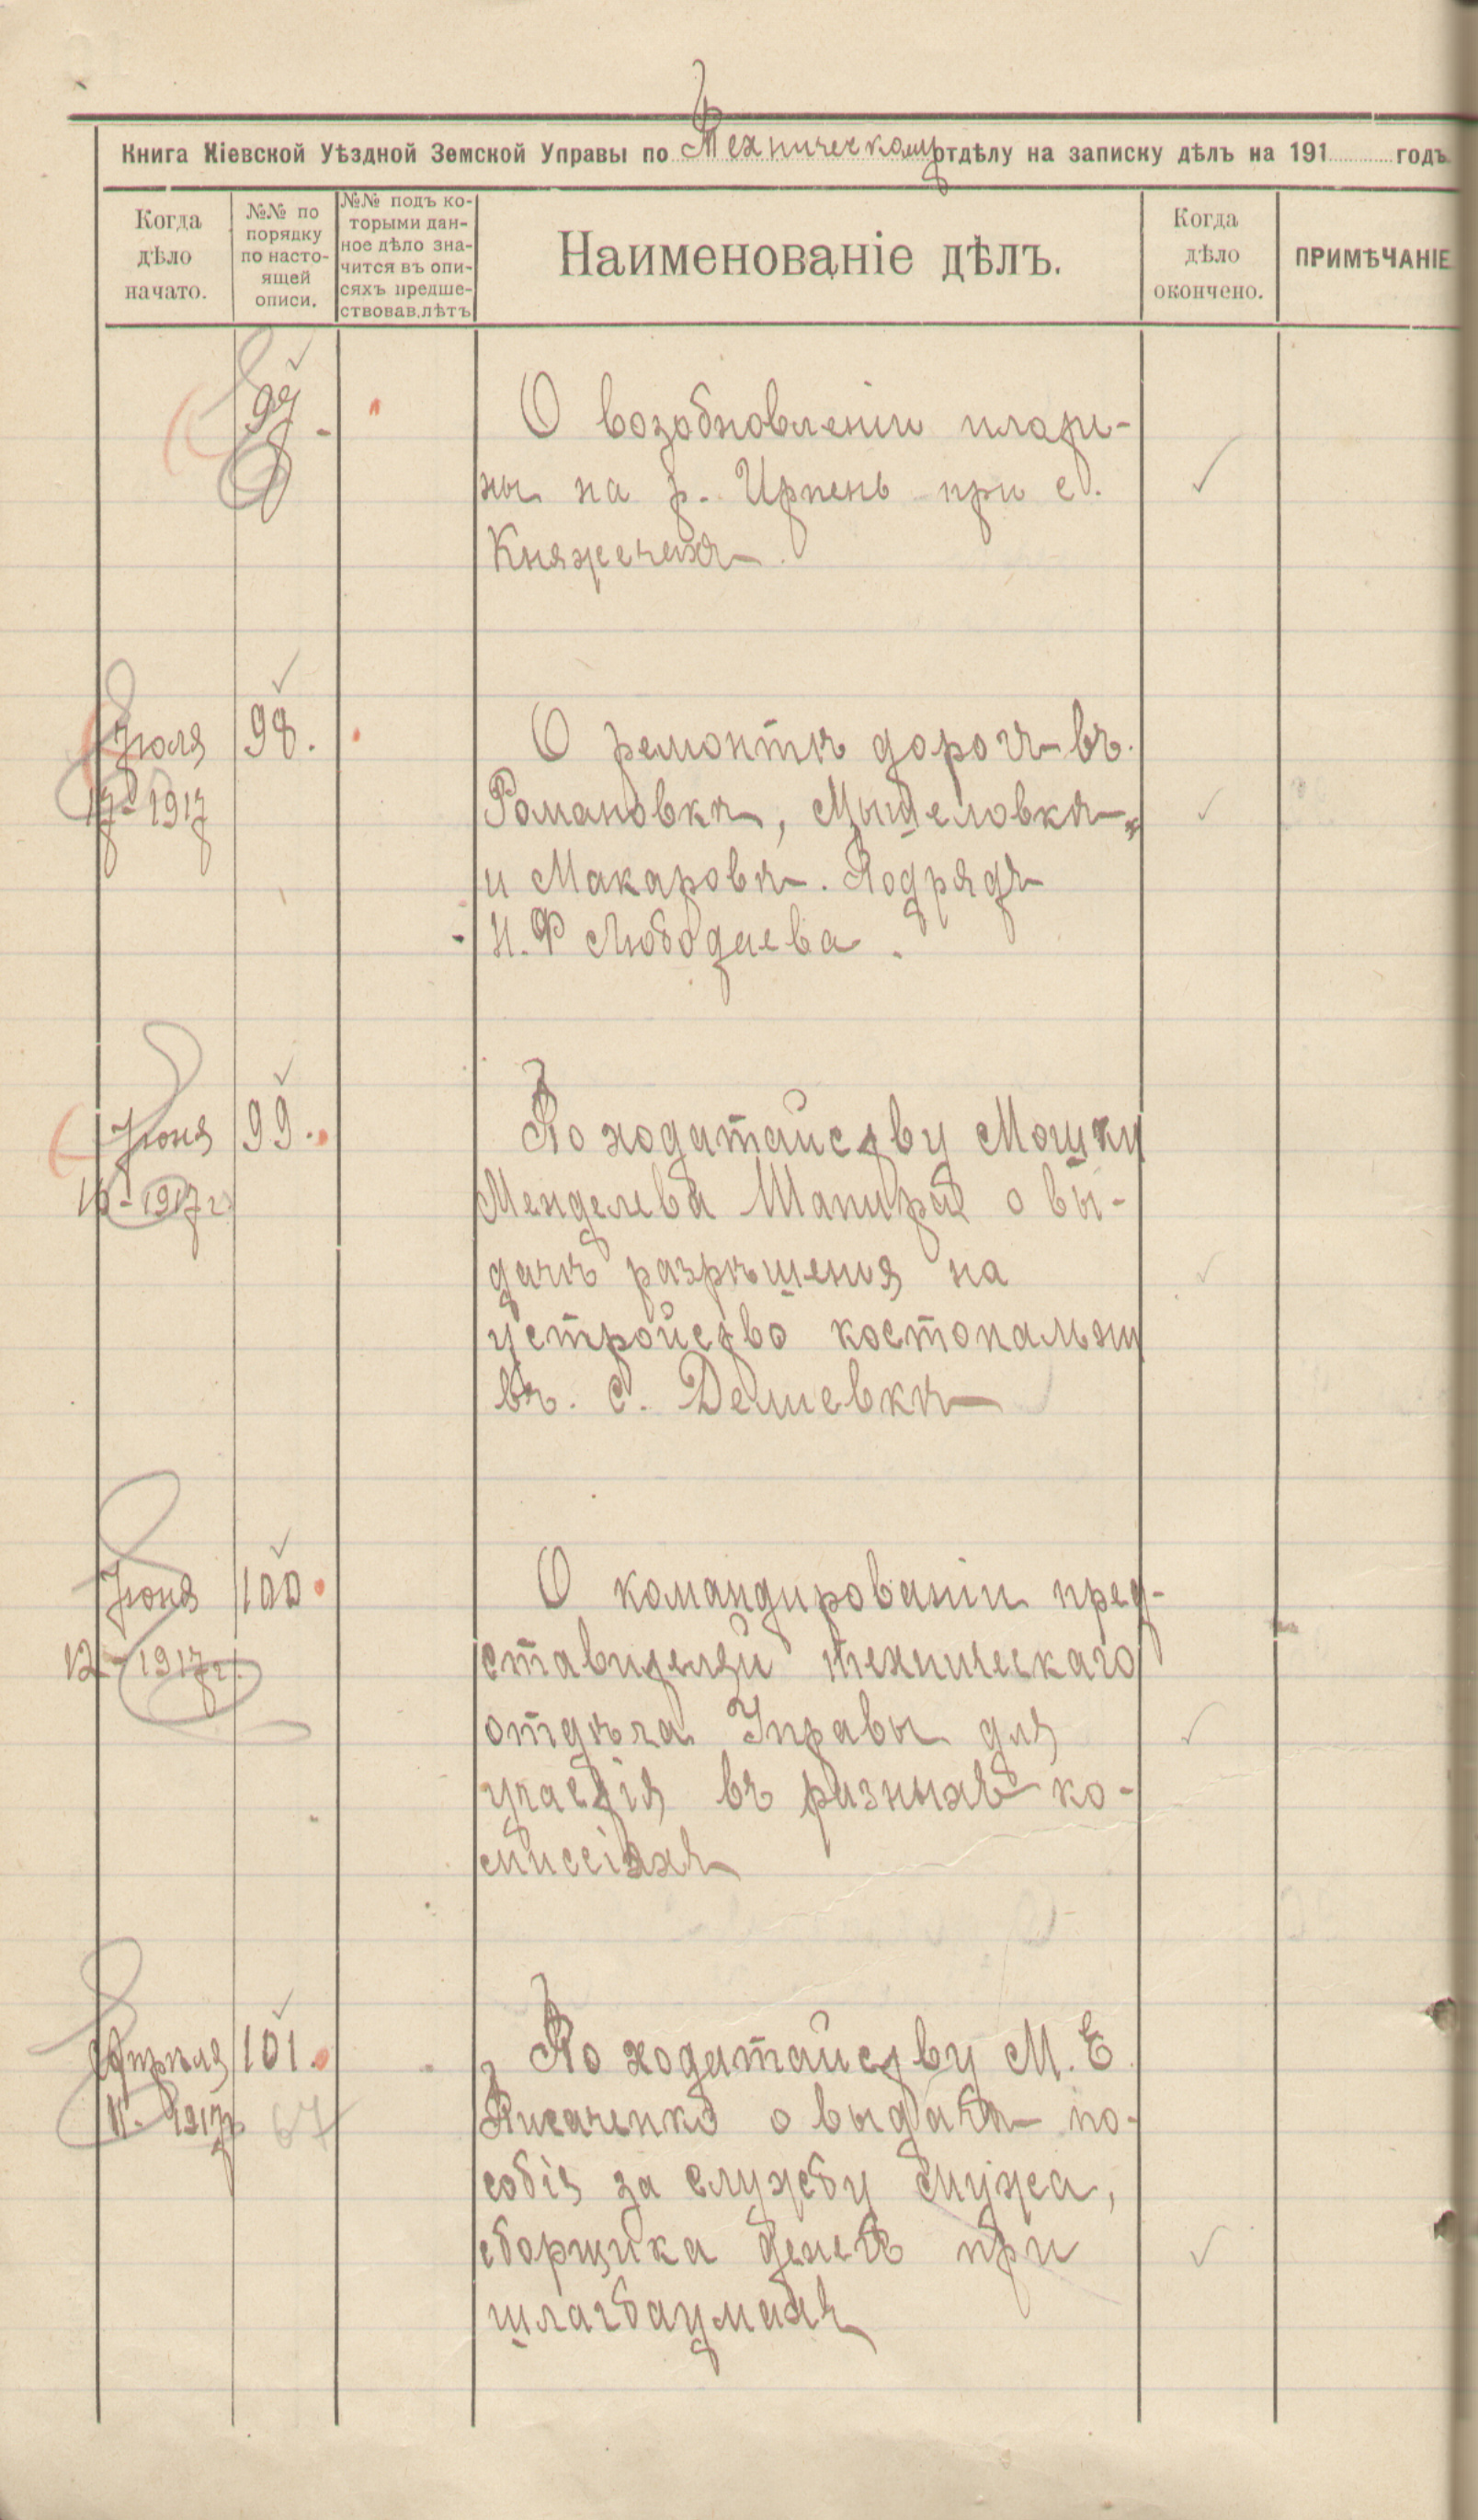 Книга Кіевской Уѣздной Земской Управы по Техническому отдѣлу на записку дѣлъ на 191 годъ
Когда дѣло начато.
№№ по порядку по настоящей описи.
№№ подъ которыми данное дѣло значится въ описяхъ предшествовав. лѣтъ
Наименованіе дѣлъ.
Когда дѣло окончено.
ПРИМѢЧАНІЕ
97.
О возобновленіи плати-
ны на р. Ирпень при с.
Княжечахъ
Іюля 98.
17-1917
О ремонтѣ дорогъ въ
Романовкѣ, Мышеловкѣ,
и Макаровѣ. Подрядъ
И. Ф Любодаева.
Іюня 99.
16-1917 г.
По ходатайству Мошки
Менделева Шапиро о вы-
дачѣ разрѣшения на
устройство костопальни
въ с. Демиевкѣ
Іюня 100
12-1917 г.
О командированіи пред-
ставителей техническаго
отдѣла Управы для
участія въ разныхъ ко-
миссіяхъ
Апрѣля 101.
11. 1917 г. 67
По ходатайству М. Е.
Писаченко о выдачѣ по-
собія за службу мужа,
сборщика денегъ при
шлагбаумахъ